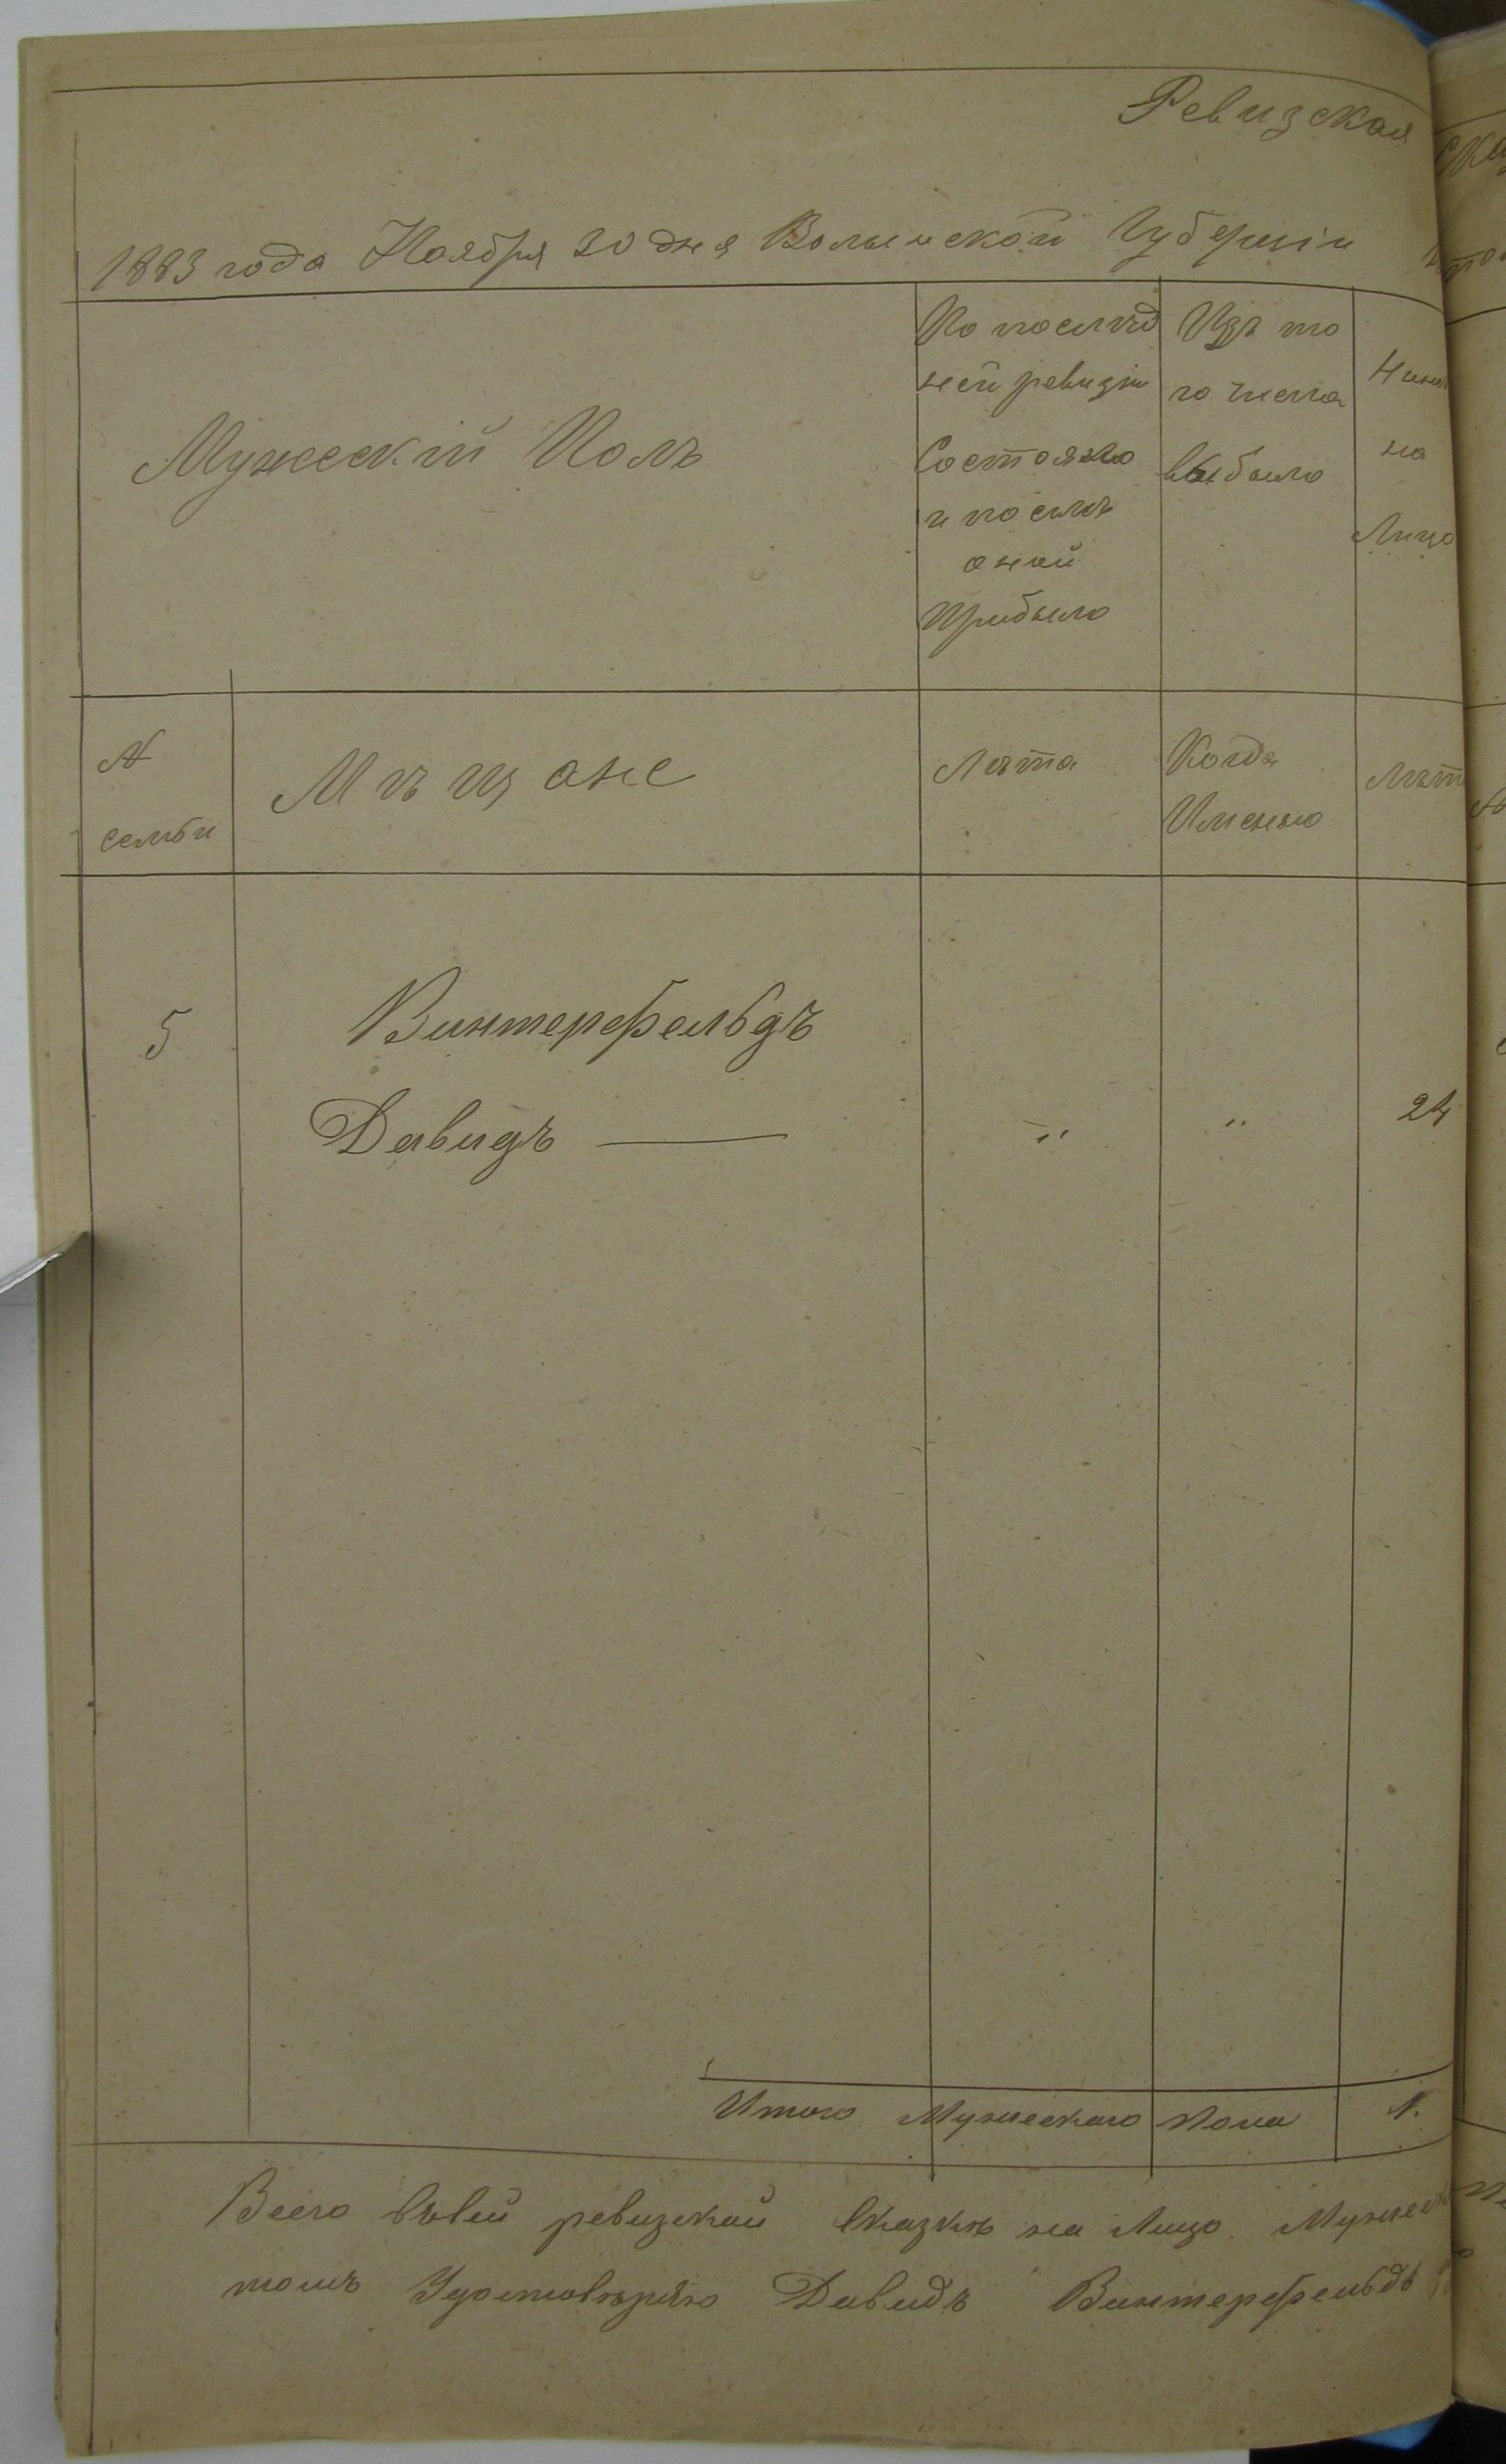 Ревизская
1883 года Ноября 30 дня Волынской Губерніи
Мужескій Полъ
По послѣд
ней ревизіи
Состояло
и послѣ
оной
Прибыло
Изъ то
го числа
выбыло
на
Лицо
№
семьи
Мѣщане
Лѣта
Когда
Именно
Лѣта
5
Винтерфельдъ
Давидъ — " " 24
Итого Мужескаго Пола 1.
Всего въ сей ревизской Сказкѣ на Лицо Мужеск
томъ Удостовѣряю Давидъ Винтерфельдъ